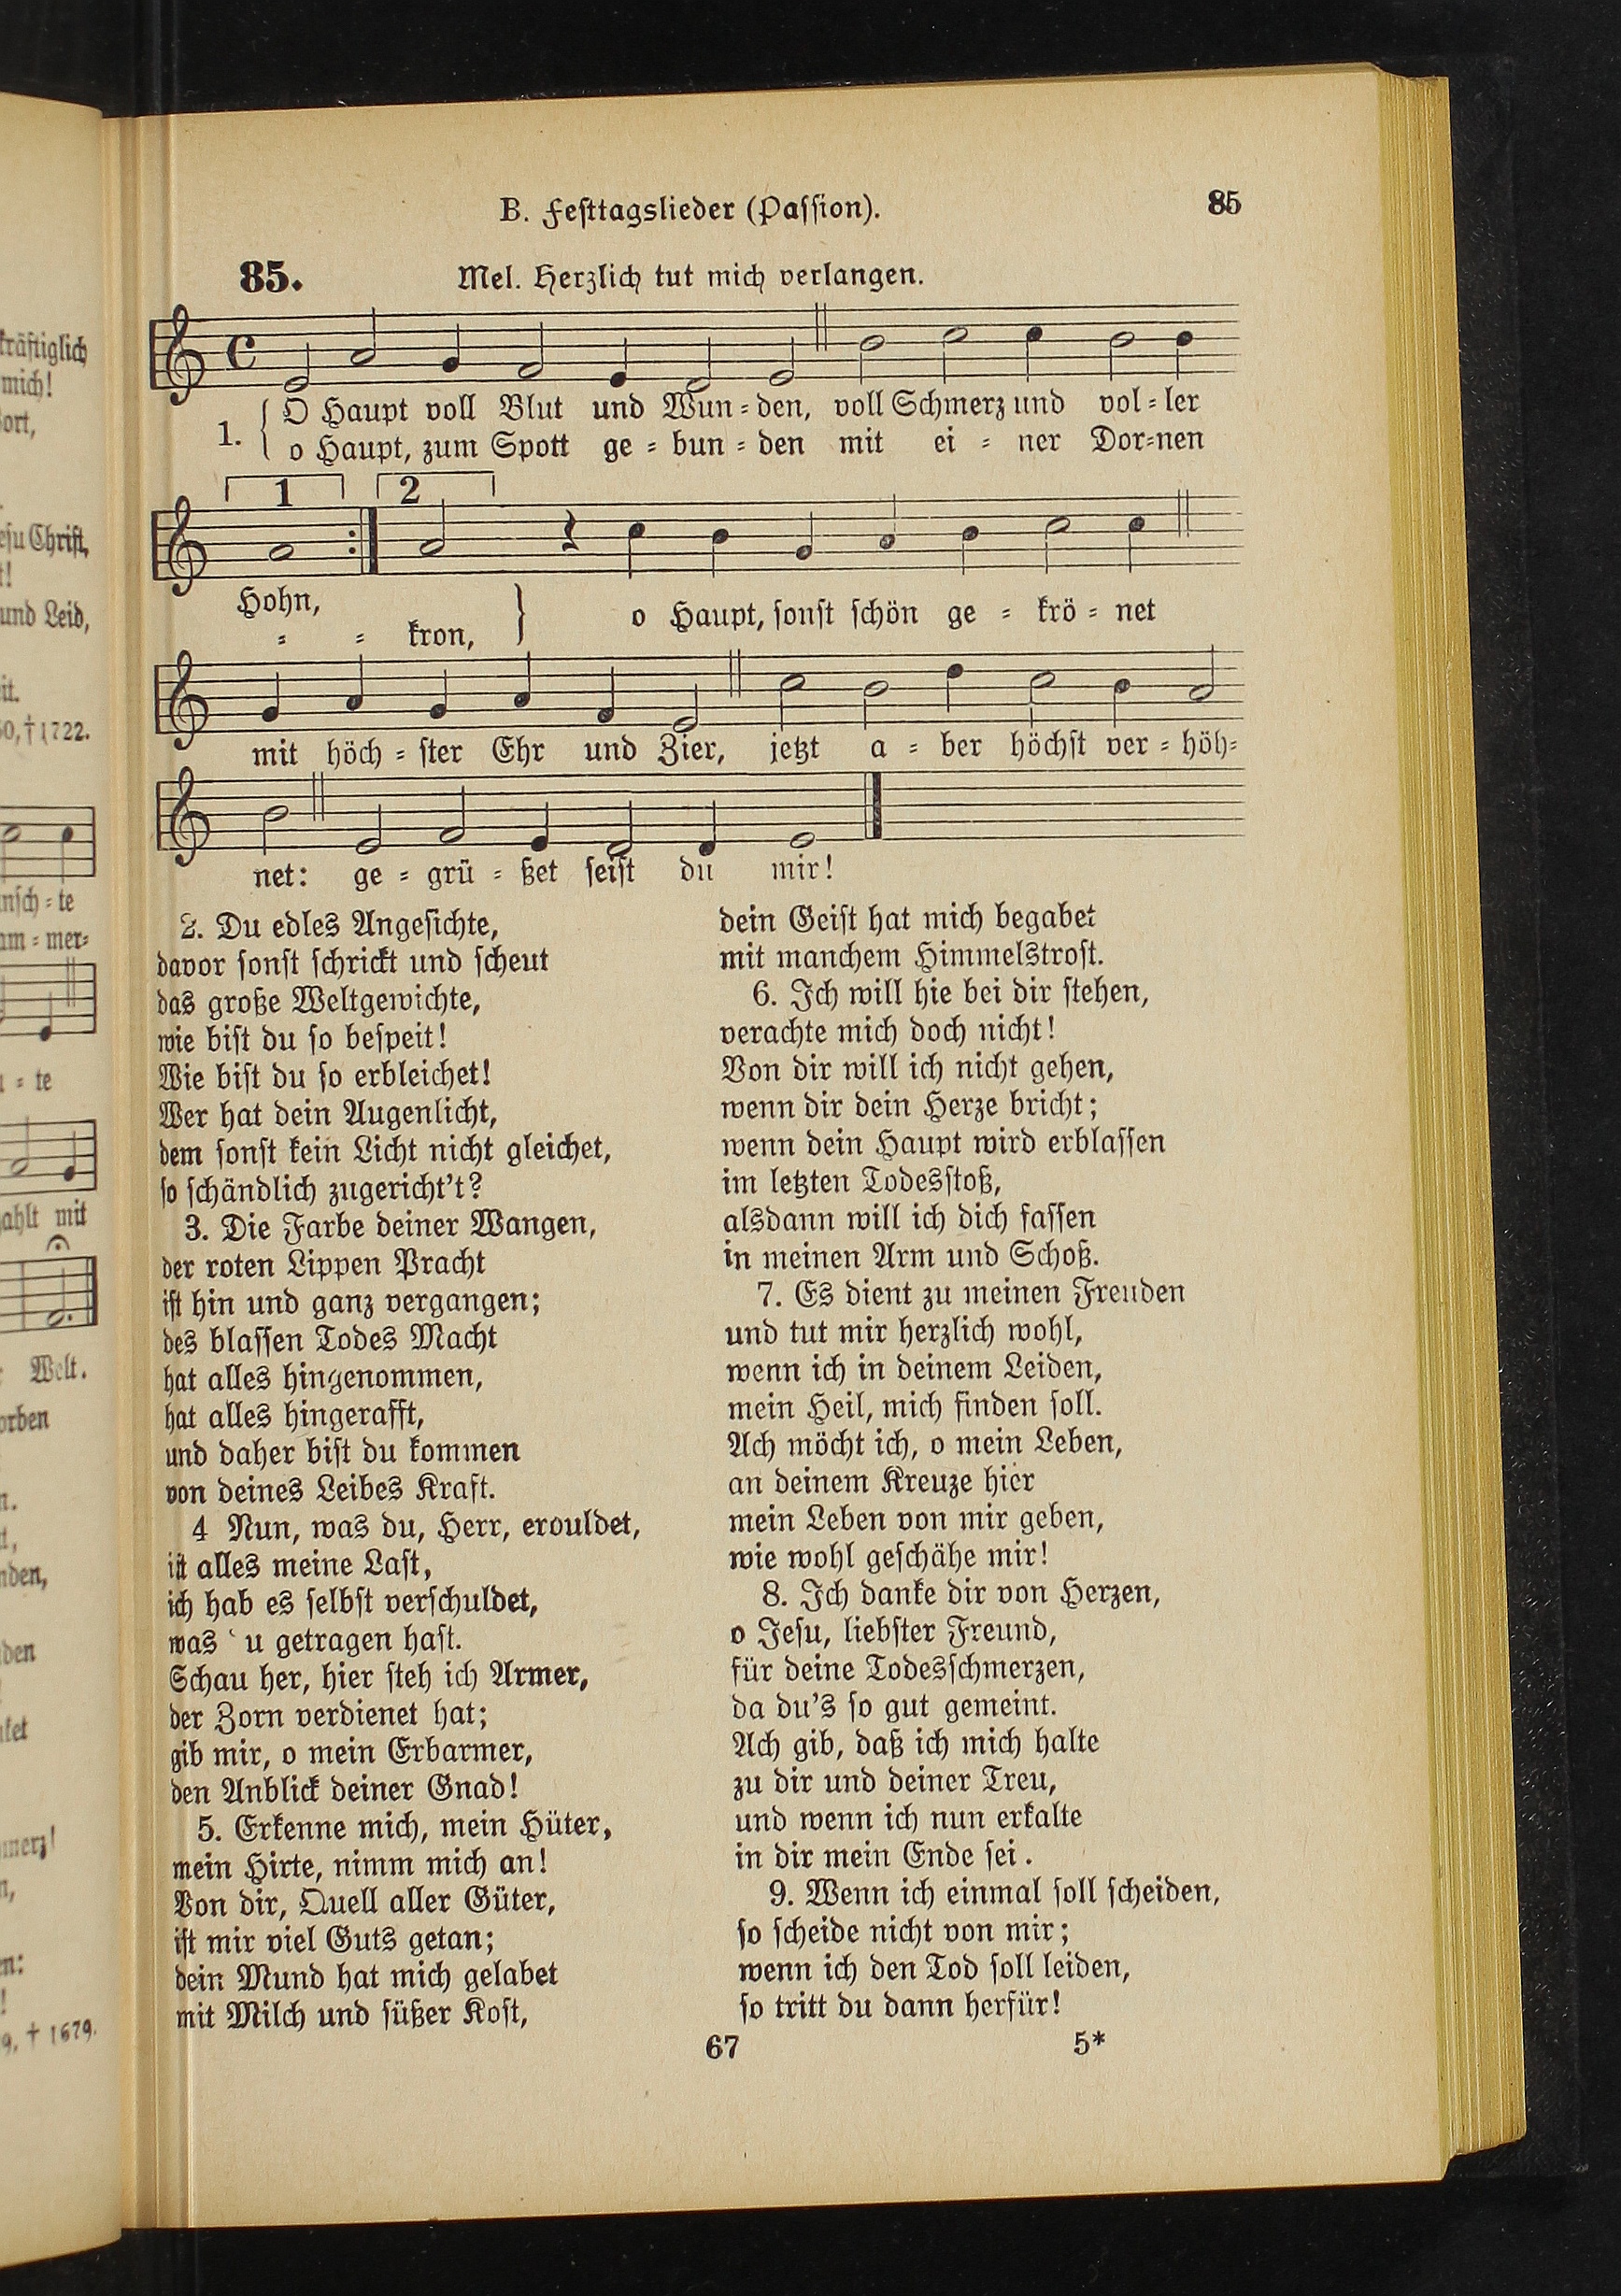 B. Festtagslieder (Passion). 85
85. Mel. Herzlich tut mich verlangen.
1. O Haupt voll Blut und Wun-den, voll Schmerz und vol-ler
o Haupt, zum Spott ge-bun-den mit ei-ner Dor-nen
1 2
Hohn,
- - kron, o Haupt, sonst schön ge-krö-net
mit höch-ster Ehr und Zier, jetzt a-ber höchst ver-höh-
net: ge-grü-ßet seist du mir!
2. Du edles Angesichte,
davor sonst schrickt und scheut
das große Weltgewichte,
wie bist du so bespeit!
Wie bist du so erbleichet!
Wer hat dein Augenlicht,
dem sonst kein Licht nicht gleichet,
so schändlich zugericht't?
3. Die Farbe deiner Wangen,
der roten Lippen Pracht
ist hin und ganz vergangen;
des blassen Todes Macht
hat alles hingenommen,
hat alles hingerafft,
und daher bist du kommen
von deines Leibes Kraft.
4 Nun, was du, Herr, erouldet,
ist alles meine Last,
ich hab es selbst verschuldet,
was u getragen hast.
Schau her, hier steh ich Armer,
der Zorn verdienet hat;
gib mir, o mein Erbarmer,
den Anblick deiner Gnad!
5. Erkenne mich, mein Hüter,
mein Hirte, nimm mich an!
Von dir, Quell aller Güter,
ist mir viel Guts getan;
dein Mund hat mich gelabet
mit Milch und süßer Kost,
dein Geist hat mich begabet
mit manchem Himmelstrost.
6. Ich will hie bei dir stehen,
verachte mich doch nicht!
Von dir will ich nicht gehen,
wenn dir dein Herze bricht;
wenn dein Haupt wird erblassen
im letzten Todesstoß,
alsdann will ich dich fassen
in meinen Arm und Schoß.
7. Es dient zu meinen Freuden
und tut mir herzlich wohl,
wenn ich in deinem Leiden,
mein Heil, mich finden soll.
Ach möcht ich, o mein Leben,
an deinem Kreuze hier
mein Leben von mir geben,
wie wohl geschähe mir!
8. Ich danke dir von Herzen,
o Jesu, liebster Freund,
für deine Todesschmerzen,
da du's so gut gemeint.
Ach gib, daß ich mich halte
zu dir und deiner Treu,
und wenn ich nun erkalte
in dir mein Ende sei.
9. Wenn ich einmal soll scheiden,
so scheide nicht von mir;
wenn ich den Tod soll leiden,
so tritt du dann herfür!
67 5*